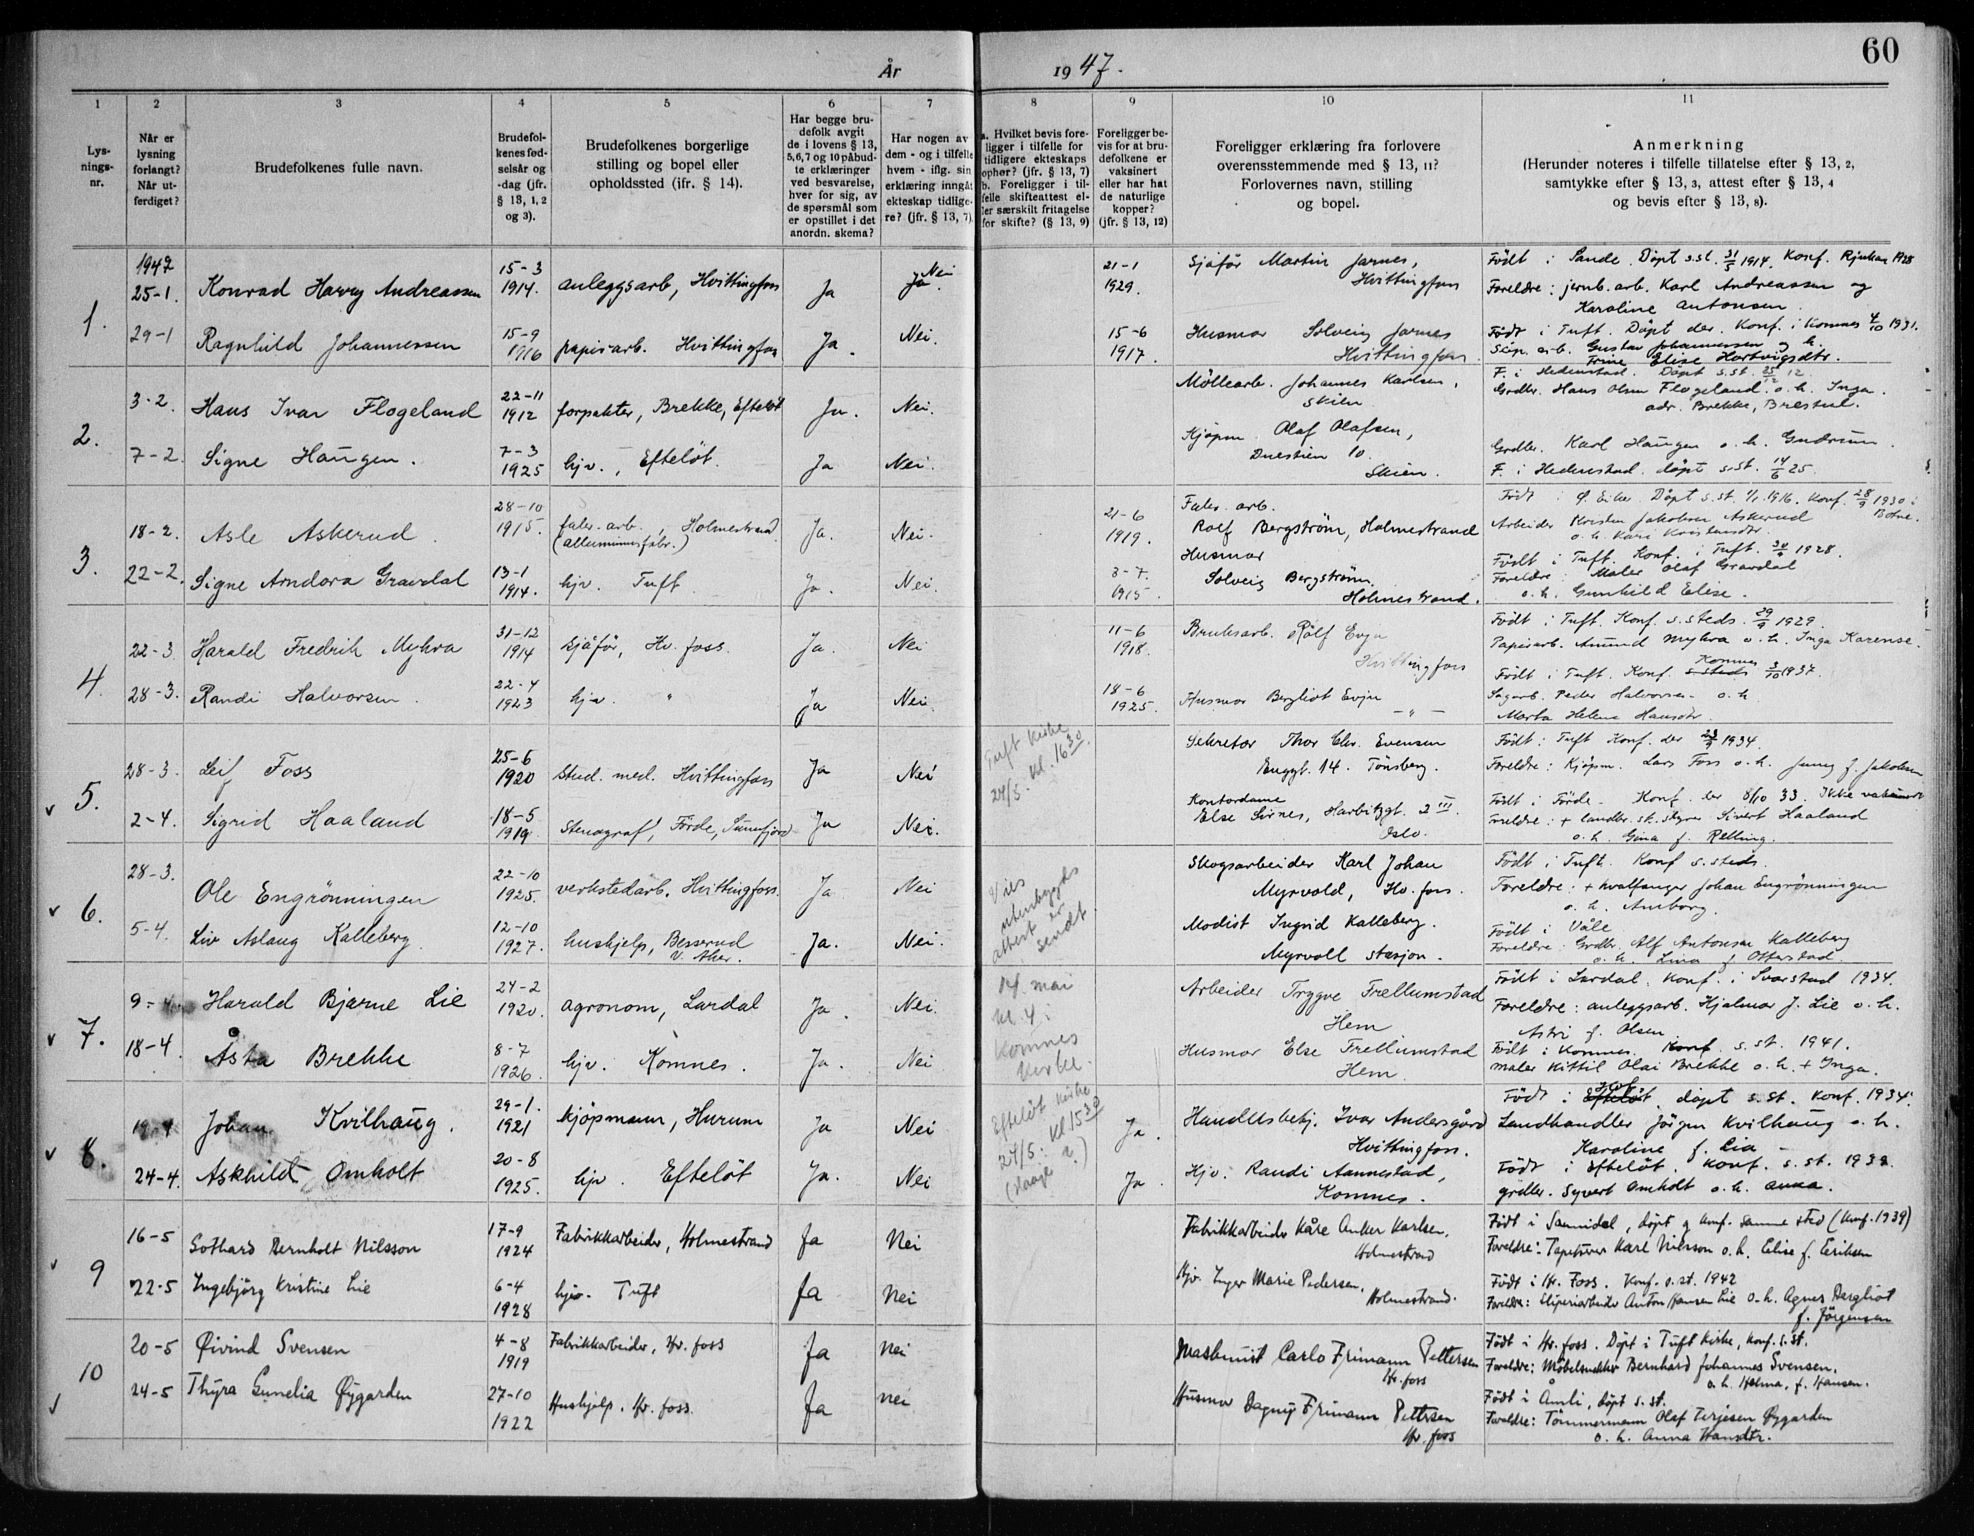 År 1947.
60
1 2 3 4 5 6 7 8 9 10 11
Lysningsnr.
Når er lysning forlangt? Når utferdiget?
Brudefolkenes fulle navn.
Brudefolkenes fødselsår og -dag (jfr. § 13, 1, 2 og 3).
Brudefolkenes borgerlige stilling og bopel eller opholdssted (ifr. § 14).
Har begge brudefolk avgit de i lovens § 13, 5, 6, 7 og 10 påbudte erklæringer ved besvarelse, hver for sig, av de spørsmål som er opstillet i det anordn. skema?
Har nogen av dem - og i tilfelle hvem - iflg. sin erklæring inngått ekteskap tidligere? (jfr. § 13, 7).
a. Hvilket bevis foreligger i tilfelle for tidligere ekteskaps ophør? (jfr. § 13, 7) b. Foreligger i tilfelle skifteattest eller særskilt fritagelse for skifte? (§ 13, 9)
Foreligger bevis for at brudefolkene er vaksinert eller har hat de naturlige kopper? (jfr. § 13, 12)
Foreligger erklæring fra forlovere overensstemmende med § 13, 11? Forlovernes navn, stilling og bopel.
Anmerkning (Herunder noteres i tilfelle tillatelse efter § 13, 2, samtykke efter § 13, 3, attest efter § 13, 4 og bevis efter § 13, 8).
1. 1947 25-1. Konrad Harry Andreassen 15-3 1914. anleggsarb, Hvittingfoss Ja Ja. Nei 21-1 1929. Sjåför Martin Jarnes, Hvittingfoss
Födt i Sande. Döpt s.st. 31/5 1914. Konf. Rjukan 1928
Foreldre: jernb. arb. Karl Andreassen og
Karoline Antonsen
29-1 Ragnhild Johannessen 15-9 1916 papirarb. Hvittingfoss Ja. Nei. 15-6 1917. Husmor Solveig Jarnes Hvittingfoss
Födt i Tuft. Döpt der. Konf. i Komnes 4/10 1931.
Slip. arb. Gustav Johannessen og h.
Trine Elise Hartvigsdtr.
2. 3-2. Hans Ivar Flogeland 22-11 1912 forpakter, Brekke, Efteløt Ja. Nei. Möllearb. Johannes Karlsen, Skien
F. i Hedenstad. Döpt s.st. 25/12 12.
Grdbr. Hans Olsen Flogeland o. h. Inga.
adr. Brekke, Brestul.
7-2. Signe Haugen. 7-3 1925 hjv., Efteløt. Ja Nei. Kjöpm. Olaf Olafsen, Duestien 10. Skien.
Grdbr. Karl Haugen o. h. Gudrun.
F. i Hedenstad. döpt s.st. 14/6 25.
3. 18-2. Asle Askerud. 28-10 1915. faber. arb., Holmestrand (alluminiumsfabr.) Ja. Nei. 21-6 1919. Faber. arb. Rolf Bergström, Holmestrand
Födt i Ø. Eiker. Döpt s.st. 1/1 1916. Konf. 28/9 1930 i Botne.
Arbeider Kristen Jakobsen Askerud
o. h. Kari Kristensdtr
22-2. Signe Arndora Gravdal 13-1 1914. hjv. Tuft. Ja. Nei. 3-7. 1915. Husmor Solveig Bergström. Holmestrand.
Födt i Tuft. Konf. i Tuft. 30/9 1928.
Foreldre: Maler Olaf Gravdal
o. h. Gunhild Elise.
4. 22-3. Harald Fredrik Myhra 31-12 1914 sjåför, Hv. foss. Ja. Nei 11-6 1918. Bruksarb. Rolf Evju Hvittingfoss
Födt i Tuft. Konf. s.steds. 29/9 1929.
Papirarb. Amund Myhra o. h. Inga Karense.
28-3. Randi Halvorsen. 22-4 1923 hjv. " Ja Nei. 18-6 1925. Husmor Bergliot Evju - " -
Födt i Tuft. Konf. s. steds Komnes 3/10 1937.
Sagarb. Peder Halvorsen o. h
Marta Helene Hansdtr.
5. 28-3. Leif Foss 25-6 1920 Stud. med. Hvittingfoss Ja Nei Tuft Kirke 24/5. kl. 16 30. Sekretær Thor Chr. Evensen Enggt. 14. Tönsberg.
Födt: Tuft Konf. der 23/9 1934.
Foreldre: Kjöpm. Lars Foss o. h. Jenny f. Jakobsen
2-4. Sigrid Haaland 18-5 1919. Stenograf, Förde, Sunnfjord Ja Nei. Kontordame Else Sirnes, Harbitzgt. 2 III. Oslo.
Födt i Förde. Konf. der 8/10 33. Ikke vaksinert
Foreldre: + landbr. sk. styrer Sivert Haaland
o. h Gina f. Relling.
6. 28-3. Ole Engrönningen 22-10 1925. verkstedarb. Hvittingfoss. Ja Nei Vies utenbygds attest er sendt. Skogsarbeider Karl Johan Myrvold, Hv. foss.
Födt i Tuft. Konf s. steds.
Foreldre: + hvalfanger Johan Engrönningen
o. h. Amborg.
5-4. Liv Aslaug Kalleberg. 12-10 1927. hushjelp, Besserud V. Aker. Ja. Nei. Modist Ingrid Kalleberg. Myrvoll stasjon.
Födt i Våle
Foreldre: Grdbr. Alf Antonsen Kalleberg
o. h. Lina f. Otterstad
7. 9-4 Harald Bjarne Lie 24-2 1920. agronom, Lardal Ja. Nei. 14 mai kl. 4 i Komnes kirke. Arbeider Trygve Trellumstad Hem
Födt i Lardal. Konf. i Svarstad 1934.
Foreldre: anleggsarb. Hjalmar J. Lie o. h.
Astri f. Olsen
18-4. Åsta Brekke 8-7 1926. hjv. Komnes. Ja. Nei Husmor Else Trellumstad Hem
Födt i Komnes. Konf s. st. 1941.
maler Kittil Olai Brekke o. h. + Inga.
8. 19-4 Johan Kvilhaug. 29-1. 1921 kjöpmann, Hurum Ja Nei Efteløt kirke 24/5. kl. 15 30 Ja. Handelsbetj. Ivar Andersgård Hvittingfoss.
Födt i Efteløt, döpt s.st. Konf. 1934.
Landhandler Jörgen Kvilhaug o. h.
Karoline f. Lia
24-4. Askhild Omholt 20-8 1925. hjv. Efteløt Ja. Nei Ja. Hjv. Randi Aannestad, Komnes.
Födt i Efteløt. Konf. s. st. 1939.
grdbr. Syvert Omholt o. h. Anna.
9 16-5 Gothard Bernholt Nilsson 17-9 1924 Fabrikkarbeider, Holmestrand Ja Nei Fabrikkarbeider Kåre Anker Karlsen, Holmestrand
Födt i Sannidal, döpt og konf. samme sted (Konf. 1939)
Foreldre: Tapetserer Karl Nilsson o. h. Elise f. Eriksen
22-5 Ingebjörg Kristine Lie 6-4 1928 hjv. Tuft Ja Nei Hjv. Inger Marie Pedersen, Holmestrand.
Födt i Hv. Foss. Konf. s. st. 1942
Foreldre: Sliperiarbeider Anton Hansen Lie o. h. Agnes Bergliot
f. Jörgensen
10 20-5 Øivind Svensen 4-8 1919 Fabrikkarbeider, Hv. foss Ja Nei Maskinist Carlo Frimann Pettersen Hv. foss
Födt i Hv. foss. Döpt i Tuft Kirke, konf. s. st.
Foreldre: Möbelsnekker Bernhard Johannes Svensen.
o. h. Helma, f. Hansen.
24-5 Thyra Gunelia Øygarden 27-10 1922 Hushjelp. Hv. foss. Ja Nei Husmor Dagny Frimann Pettersen Hv. foss
Födt i Åmli, döpt s. st.
Foreldre: Tömmermann Olaf Terjesen Øygarden
o. h. Anna Hansdtr.